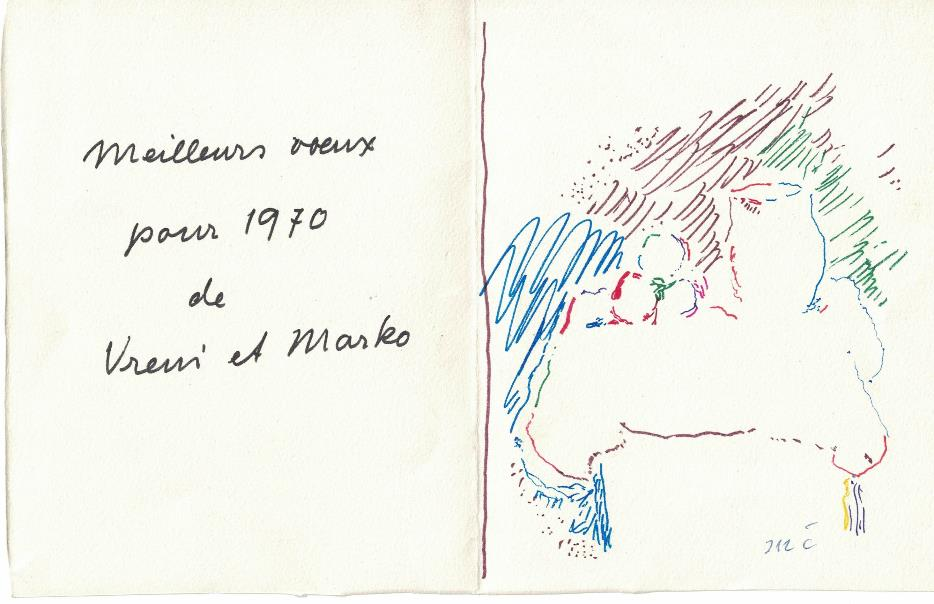 Meilleurs voeux
pour 1970
de
Vreni et Marko
mč